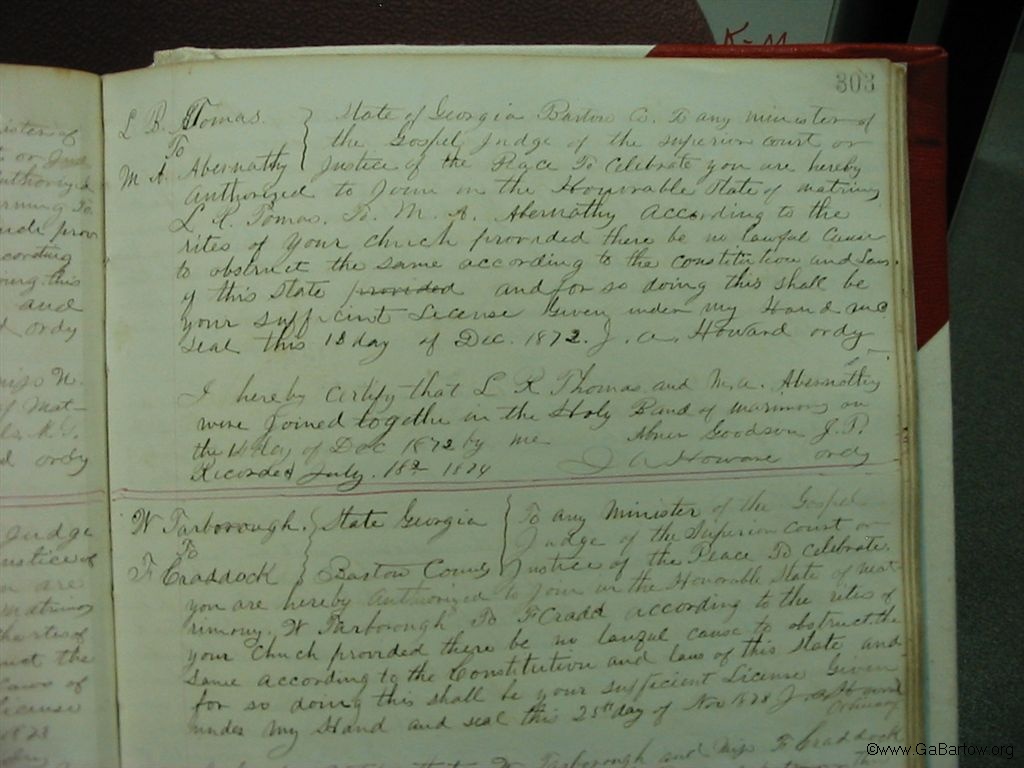 K-M
303
L B Tomas. } State of Georgia Bartow Co. To any minister of
To the Gospel Judge of the superior court or
M A. Abernathy } Justice of the Peace To Celebrate you are hereby
authorized to Join in the Honorable State of matrimony
L R. Tomas. To. M. A. Abernathy according to the
rites of your church provided there be no lawful Cause
to obstruct the same according to the constitution and Laws
of this State provided and for so doing this shall be
your sufficient License Given under my Hand and
seal this 18 day of Dec. 1872. J. A. Howard ordy
I hereby certify that L R Thomas and M. A. Abernathy
were Joined together in the Holy Band of matrimony on
the day of Dec 1872 by me Abner Goodson J. P.
Recorded July. 18th 1874 J A Howard ordy
W Tarborough. } State Georgia } To any Minister of the Gospel
To Judge of the Superior Court or
F Craddock } Bartow County } Justice of the Peace To Celebrate
you are hereby authorized to Join in the Honorable State of mat
rimony. W Tarborough To F Cradd according to the rites of
your Chuch provided there be no lawful cause to obstruct the
same according to the Constitution and laws of this State and
for so doing this shall be your sufficient License Given
under my Hand and seal this 25th day of Nov 1873 J A Howard
Ordinary
Tarborough and Miss F Craddock
©www.GaBartow.org